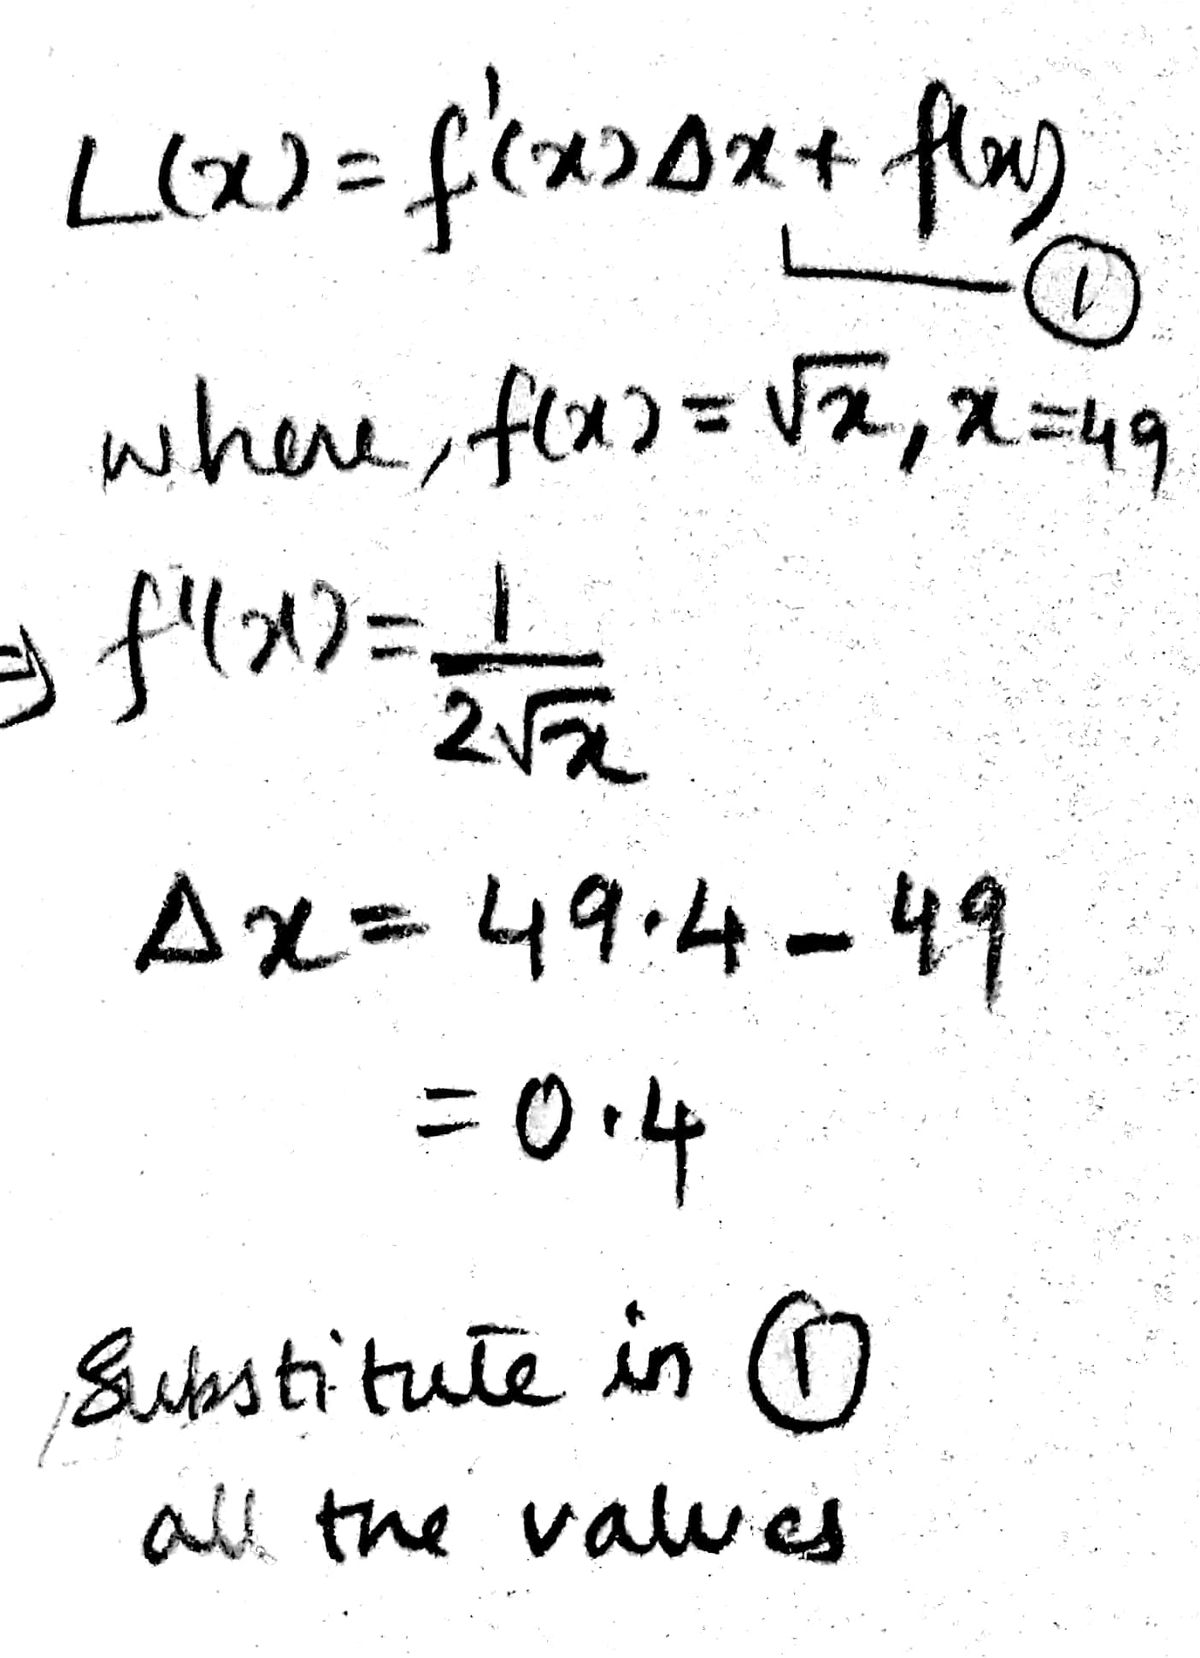 L(x) = f'(x) Δx + f(x)
①
where, f(x) = √x, x = 49
⇒ f'(x) = 1/(2√x)
Δx = 49.4 - 49
= 0.4
Substitute in ①
all the values